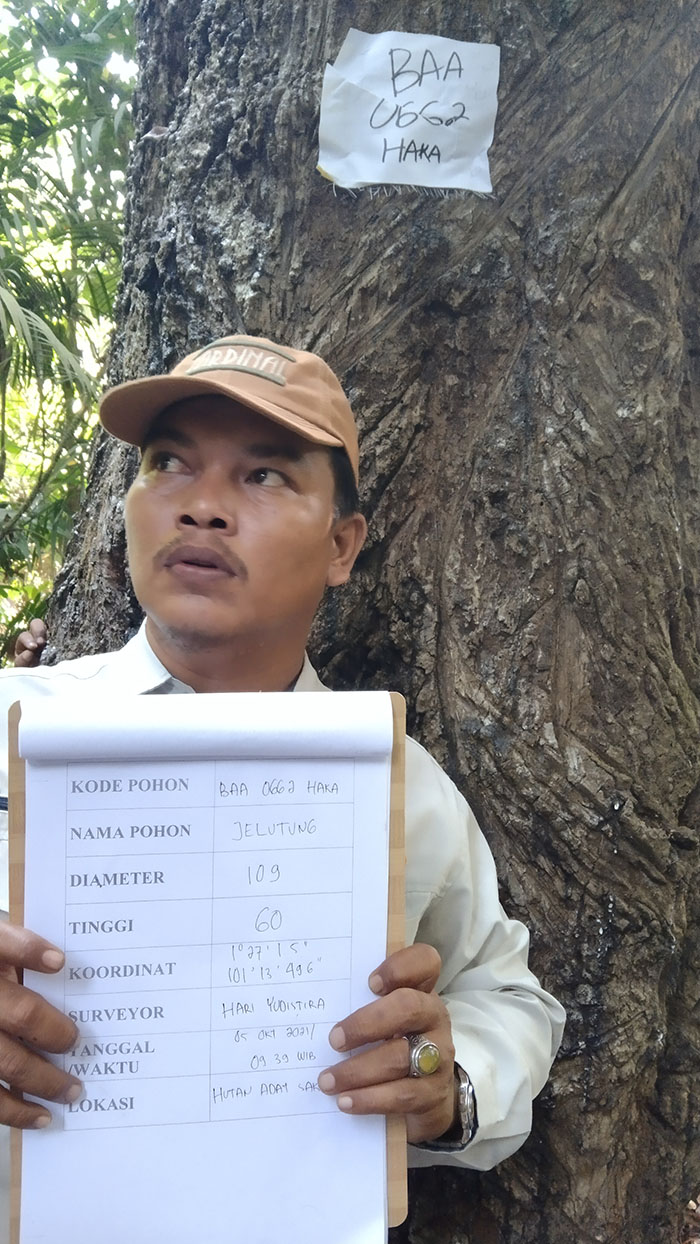 BAA
066.2
HAKA
CARDINAL
KODE POHON BAA 0662 HAKA
NAMA POHON JELUTUNG
DIAMETER 109
TINGGI 60
KOORDINAT 1° 27' 1 5"
101° 13' 49 6"
SURVEYOR HARI YUDISTIRA
TANGGAL 05 OKT 2021/
/WAKTU 09 39 WIB
LOKASI HUTAN ADAT